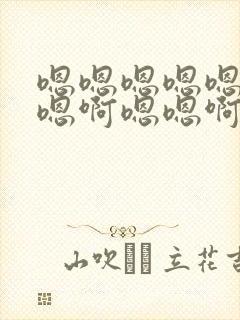 嗯嗯嗯嗯嗯
嗯啊嗯嗯啊
山吹 立花